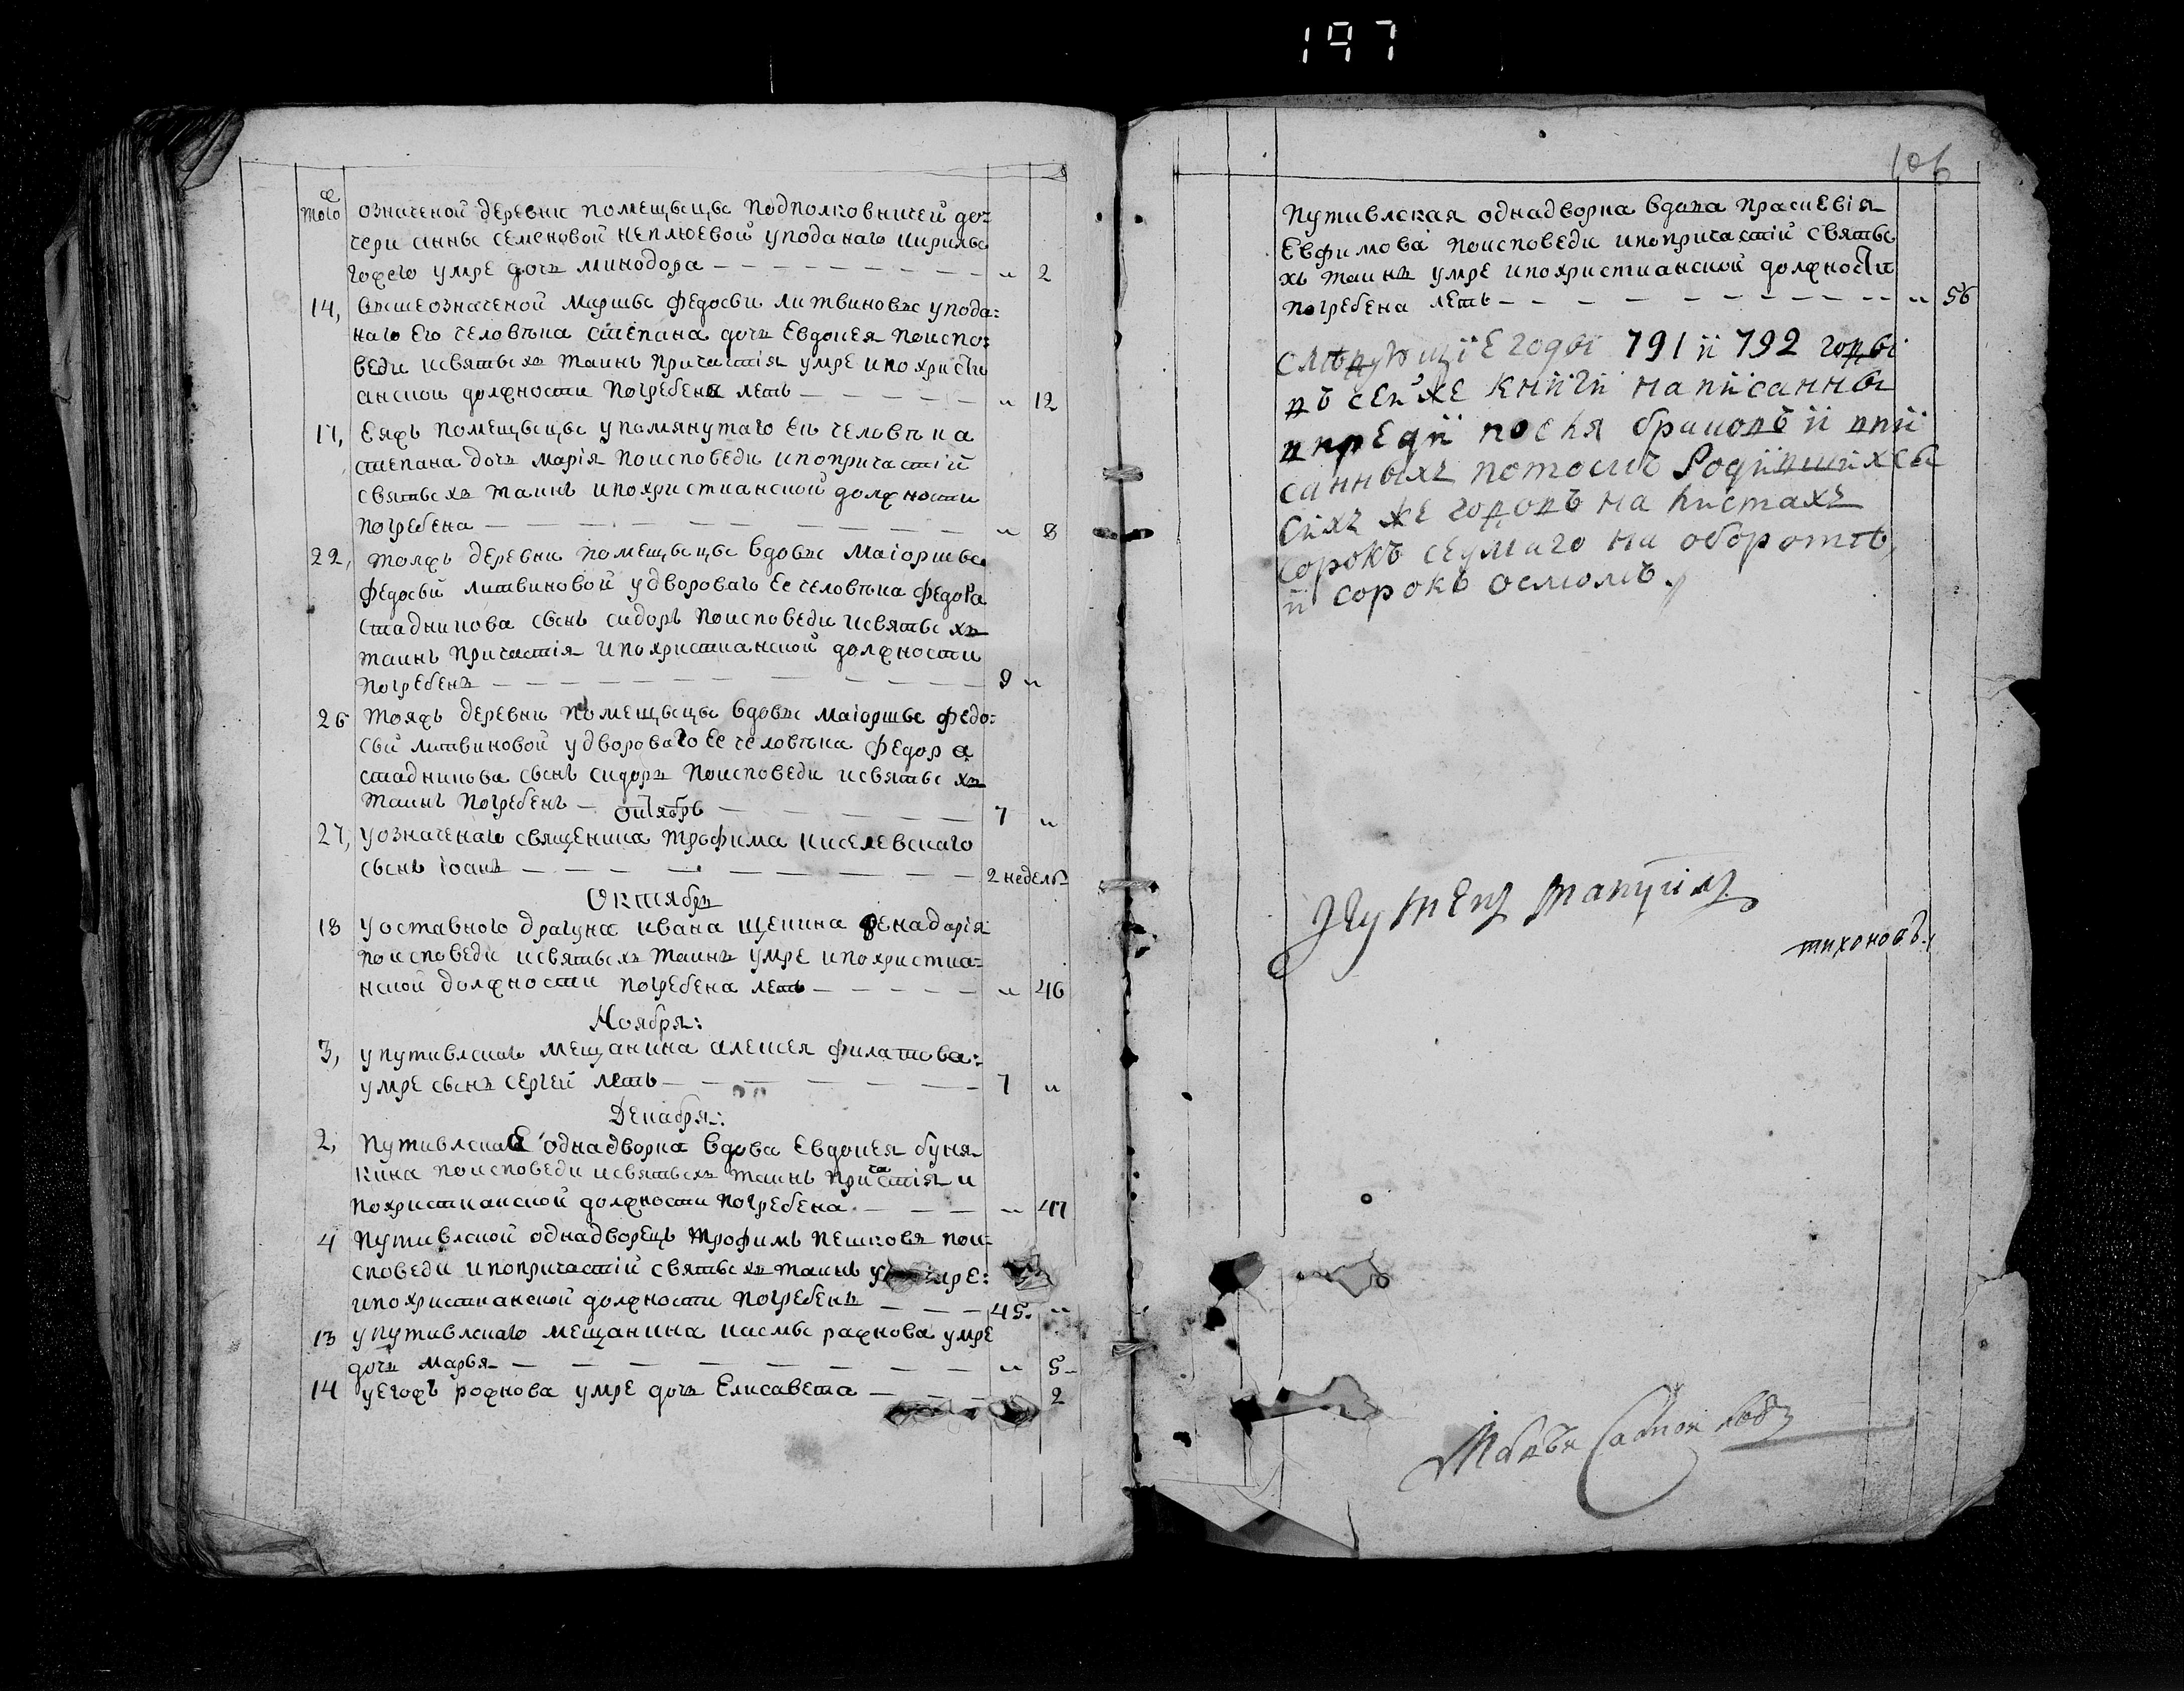 197
106
тогоже означеной деревни помещьицы подполковничей до=
чери анны семеновой неплюевой уподанаго кирилы
гожего умре дочъ минодора — — — " 2
14, вышеозначеной маиоршы федосьи литвиновъ упода=
наго его человѣка степана дочъ Евдокея поиспо=
веди исвятыхъ таинъ причастія умре ипохристи
анской должности погребена леть — — " 12
17, Еяжъ помещьицы упомянутаго ей человѣка
степана дочъ марія поисповеди ипопричастіи
святыхъ таинъ ипохристианской должности
погребена — — — " 8
22, тояжъ деревни помещьицы вдовы маіоршы
федосьи литвиновой удвороваго ее человѣка федора
стадникова сынъ сидоръ поисповеди исвятыхъ
таинъ причастія ипохристианской должности
погребенъ — — — 9 "
26 тояжъ деревни помещьицы вдовы маіоршы федо=
сьи литвиновой удвороваго ее человѣка федора
стадникова сынъ сидоръ поисповеди исвятыхъ
таинъ погребенъ — — — 7 "
октябрь
27, уозначенаго священика трофима киселевскаго
сынъ іоанъ — — — 2 недель
Октябръ
18 уоставного драгуна ивана щекина
поисповеди исвятыхъ таинъ умре ипохристиа=
нской должности погребена леть — — " 46
Ноября:
3, упутивлскаго мещанина алексея филатова:
умре сынъ сергей леть — — — 7 "
Декабря:
2, путивлская однадворка вдова Евдокея буня
кина поисповеди исвятыхъ таинъ причастія и
похристианской должности погребена — — " 47
4 путивлской однадворецъ трофимъ пешковъ пои=
споведи ипопричастіи святыхъ таинъ умре:
ипохристианской должности погребенъ — — 45. "
13 упутивлскаго мещанина касмы рахнова умре
дочъ марья — — — " 5
14 уегожъ рожнова умре дочъ Елисавета — — 2
путивлская однадворка вдова праскевія
Евфимова поисповеди ипопричастій святы
хъ таинъ умре ипохристианской должности
погребена леть — — — " 56
слѣдующіе годы 791 и 792 годы
въ сей же книги написанны
впреди посля браковъ и впи
санныхъ потомъ родившихсы
сихъ же годовъ на листахъ
сорокъ седмаго на оборотѣ,
и сорокъ осмомъ.
тихоновъ